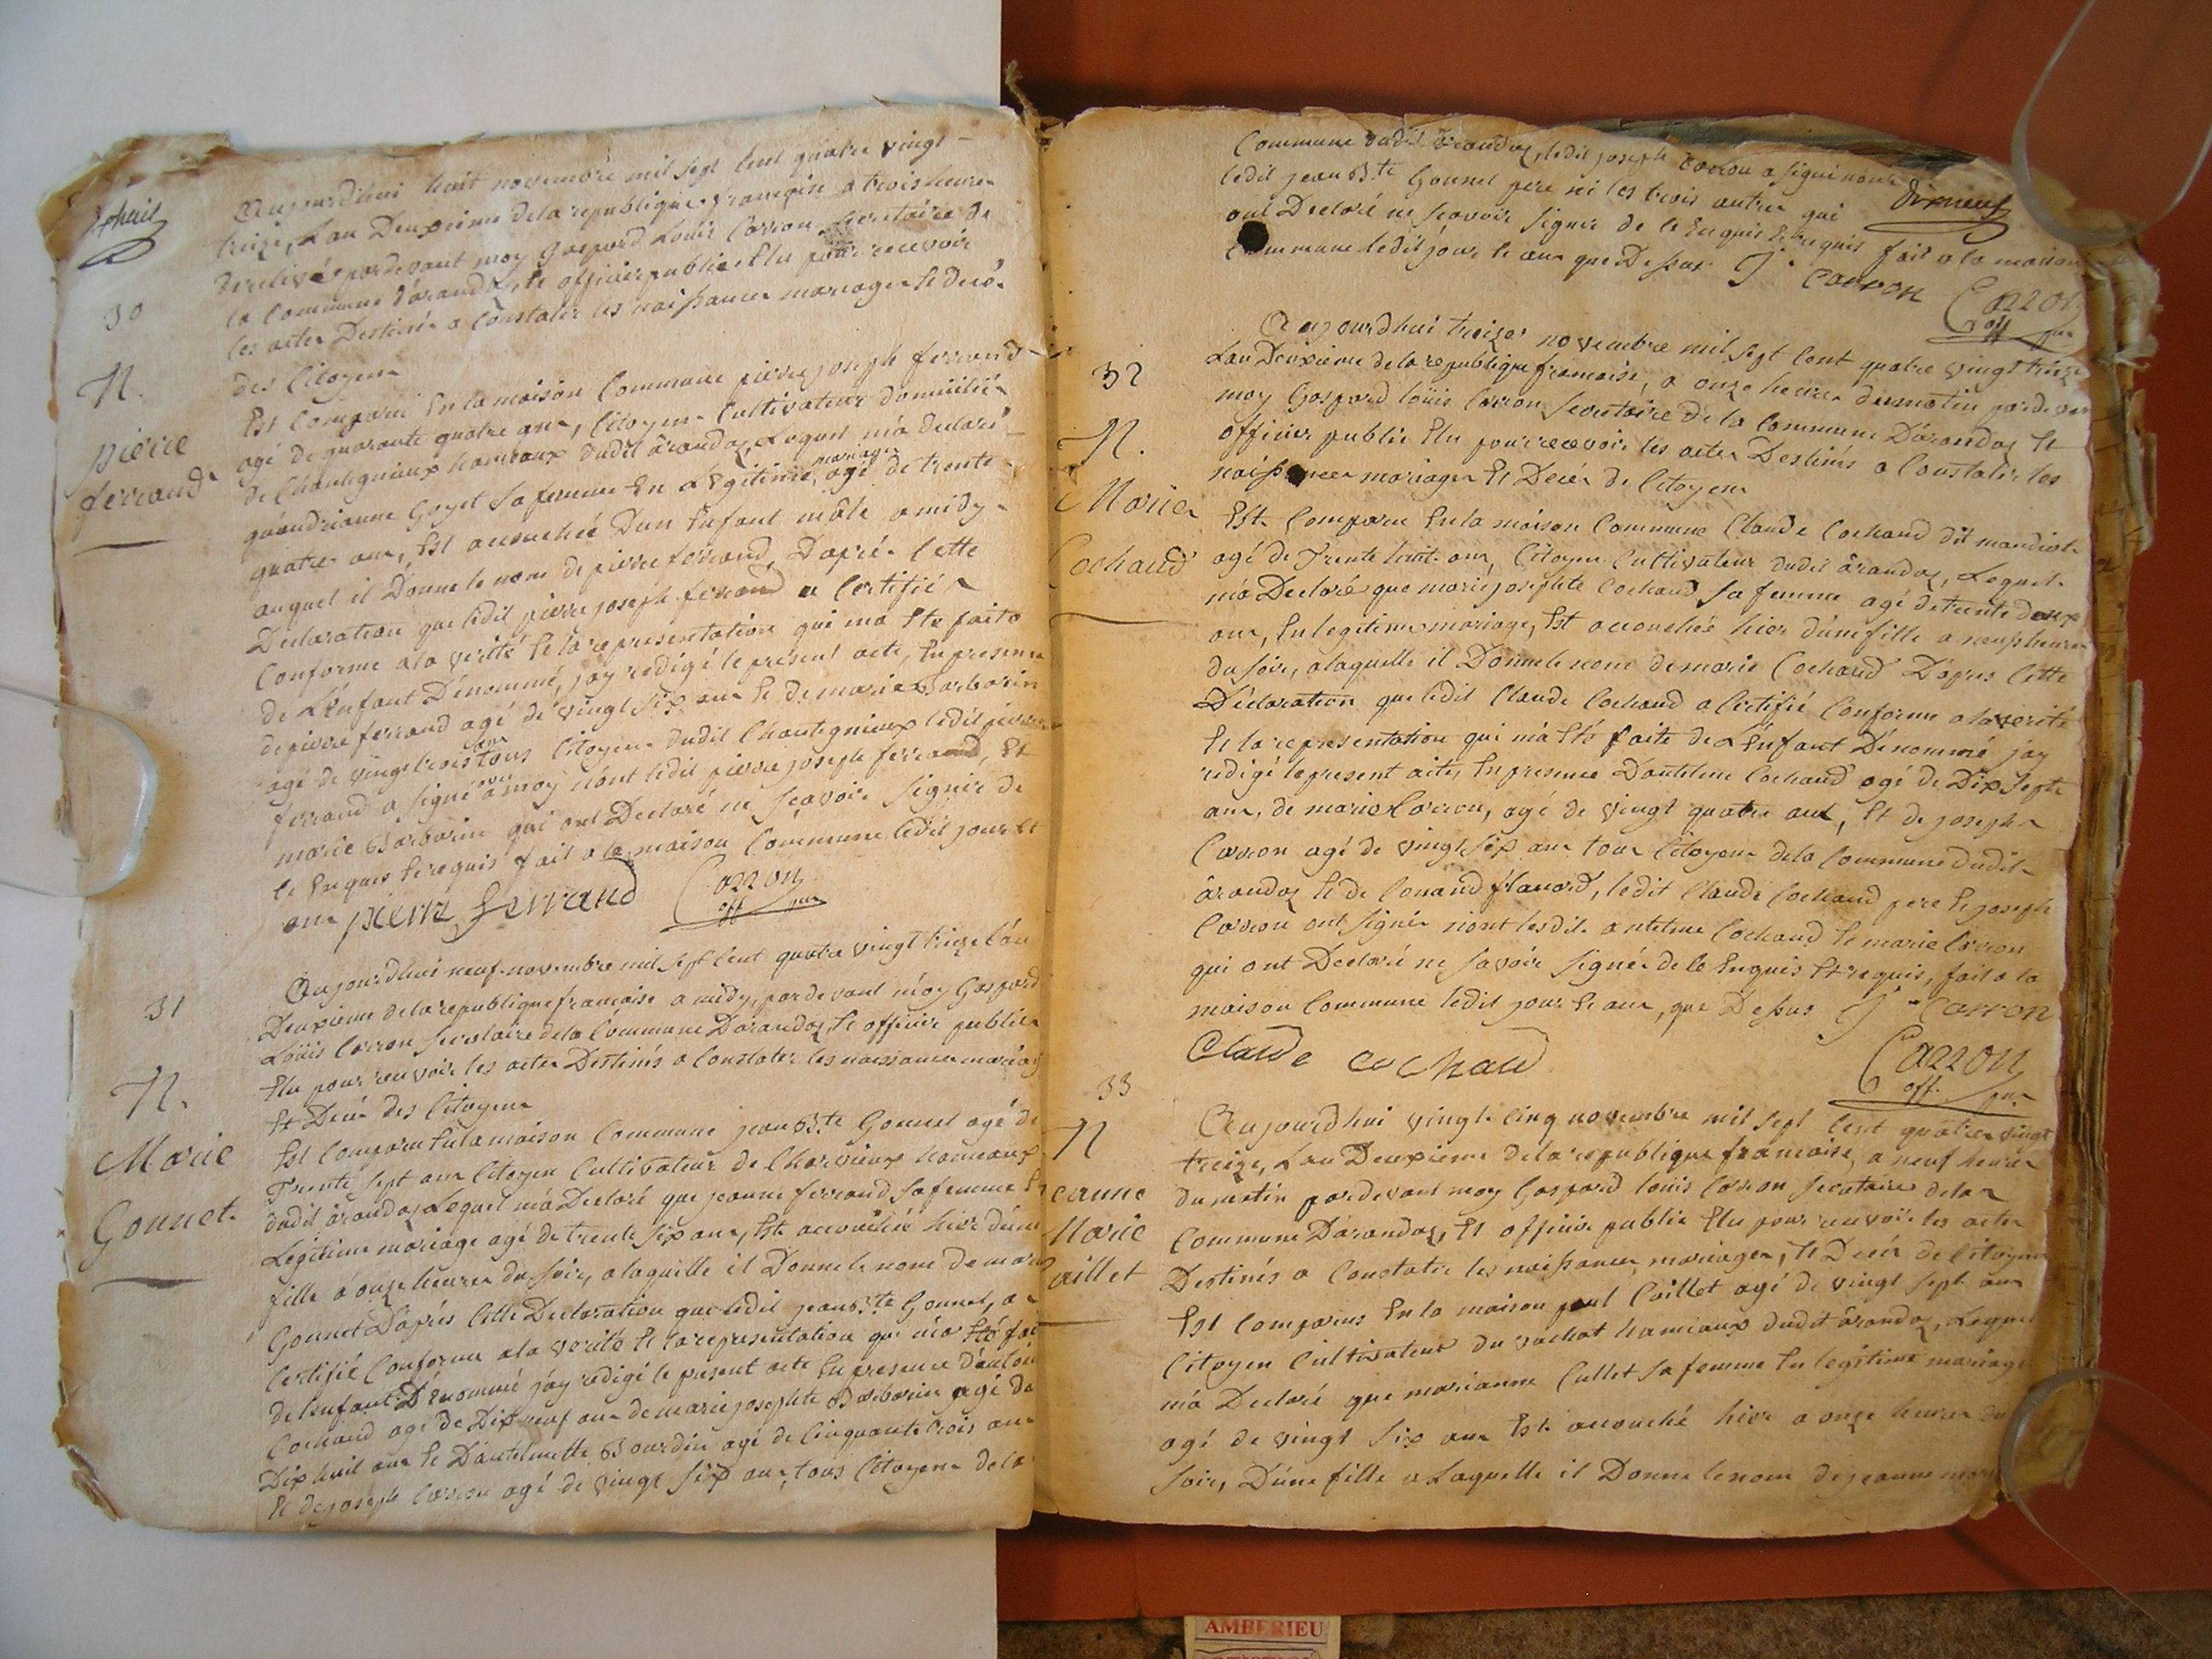 huit
Aujourdhui huit novembre mil sept Cent quatre vingt
treize, Lan Deuxieme de la republique françoise a trois heures
de relivée pardevant moy Gaspard Louis Carron Secretaire de
la Commune d'arandas, et officier public Elu pour recevoir
les actes Destinés a Constater les naissances mariages et decés
des Citoyens
30
N.
pierre
ferrand
Est Comparu En la maison Commune pierre joseph ferrand
agé de quarante quatre ans, Citoyen Cultivateur domicilié
de Chantegnieux hameaux dudit ârandas, Lequel m'a declaré
qu'andrianne Goyet sa femme En Légitime mariage agé de trente
quatre ans, Est accouchée D'un Enfant mâle a midy
auquel il Donne le nom de pierre ferrand, D'aprés Cette
Declaration que ledit pierre joseph ferrand a Certifié
Conforme a la verité Et la representation qui ma Eté faite
de L'Enfant Dénommé, jay redigé le present acte, En presence
de pierre ferrand agé de vingt six ans Et de marie Barbarin
agé de vingt trois ans tous Citoyens dudit Chantegnieux ledit pierre
ferrand a signé avec moy non ledit pierre joseph ferrand, Et
marie Barbarin qui ont Declaré ne sçavoir signer de
Ce Enquis Et requis fait a la maison Commune ledit jour Et
an pierre ferrand Carron
off pu
31
N.
Marie
Gonnet
Aujourdhui neuf novembre mil sept Cent quatre vingt treize L'an
Deuxieme de la republique francoise a midy, par devant moy Gaspard
Loüis Carron Secretaire de la Commune Darandas Et officier public
Elu pour recevoir les actes Destinés a Constater les naissances mariages
Et Decés des Citoyens
Est Comparu En la maison Commune jean B.te Gonnet agé de
Trente sept ans Citoyen Cultivateur de Charvieux hameaux
dudit ârandas Lequel m'a Declaré que jeanne ferrand sa femme En
Légitime mariage agé de trente six ans, Est accouchée hier d'une
fille a onze heures du soir, a laquelle il Donne le nom de marie
Gonnet D'aprés Cette Declaration que ledit jean B.te Gonnet, a
Certifié Conforme a la verité Et la representation qui m'a Eté fait
de l'enfant Dénommé j'ay redigé le present acte En presence d'antoine
Cochaud agé de Dix neuf ans de marie josephte Barbarin agé de
Dix huit ans Et D'antelmette Bourdin agé de Cinquante trois ans
Et de joseph Carron agé de vingt six ans, tous Citoyens de la
Commune dudit arandas, ledit joseph Carron a signé non
ledit jean B.te Gonnet pere ni les trois autres qui
ont Declaré ne sçavoir signer de Ce Enquis Et requis fait a la maison
Commune ledit jour Et an que Dessus J. Carron Carron
off pu
32
N.
Marie
Cochaud
Aujourdhui treize novembre mil sept Cent quatre vingt treize
Lan Deuxieme de la republique francoise, a onze heures du matin pardevant
moy Gaspard loüis Carron Secretaire de la Commune D'arandas Et
officier public Elu pour recevoir les actes Destinés a Constater les
naissances mariages Et Decés de Citoyens
Est Comparu En la maison Commune Claude Cochaud dit mandiot
agé de Trente huit ans, Citoyen Cultivateur dudit ârandas, Lequel
m'a Declaré que marie josephte Cochaud sa femme agé de trente deux
ans, En legitime mariage, Est accouchée hier d'une fille a neuf heures
du soir, a laquelle il Donne le nom de marie Cochaud D'apres Cette
Déclaration que ledit Claude Cochaud a Certifié Conforme a la verité
Et la representation qui m'a Eté faite de L'Enfant Dénommé jay
redigé le present acte, En presence D'antelme Cochaud agé de Dix sept
ans, de marie Carron, agé de vingt quatre ans, Et de joseph
Carron agé de vingt six ans tous Citoyens de la Commune dudit
ârandas Et de Conand, ledit Claude Cochaud pere Et joseph
Carron ont signés non lesdits antelme Cochaud Et marie Carron
qui ont Declaré ne savoir signér de Ce Enquis Et requis, fait a la
maison Commune ledit jour Et an, que Dessus J. Carron
Claude cochaud
Carron
off. pu.
33
N
eanne
Marie
aillet
Aujourdhui vingt cinq novembre mil sept Cent quatre vingt
treize, Lan Deuxieme de la republique francoise, a neuf heures
du matin pardevant moy Gaspard loüis Carron secretaire de la
Commune D'arandas, Et officier public Elu pour recevoir les actes
Destinés a Constater les naissances, mariages, Et Decés de Citoyens
Est Comparus En la maison paul Caillet agé de vingt sept ans
Citoyen Cultivateur du vachat hamiaux dudit ârandas, Lequel
m'a Declaré que marianne Cullet sa femme En legitime mariage
agé de vingt six ans Est accouché hier a onze heures du
soir, D'une fille a Laquelle il Donne le nom de jeanne marie
AMBERIEU